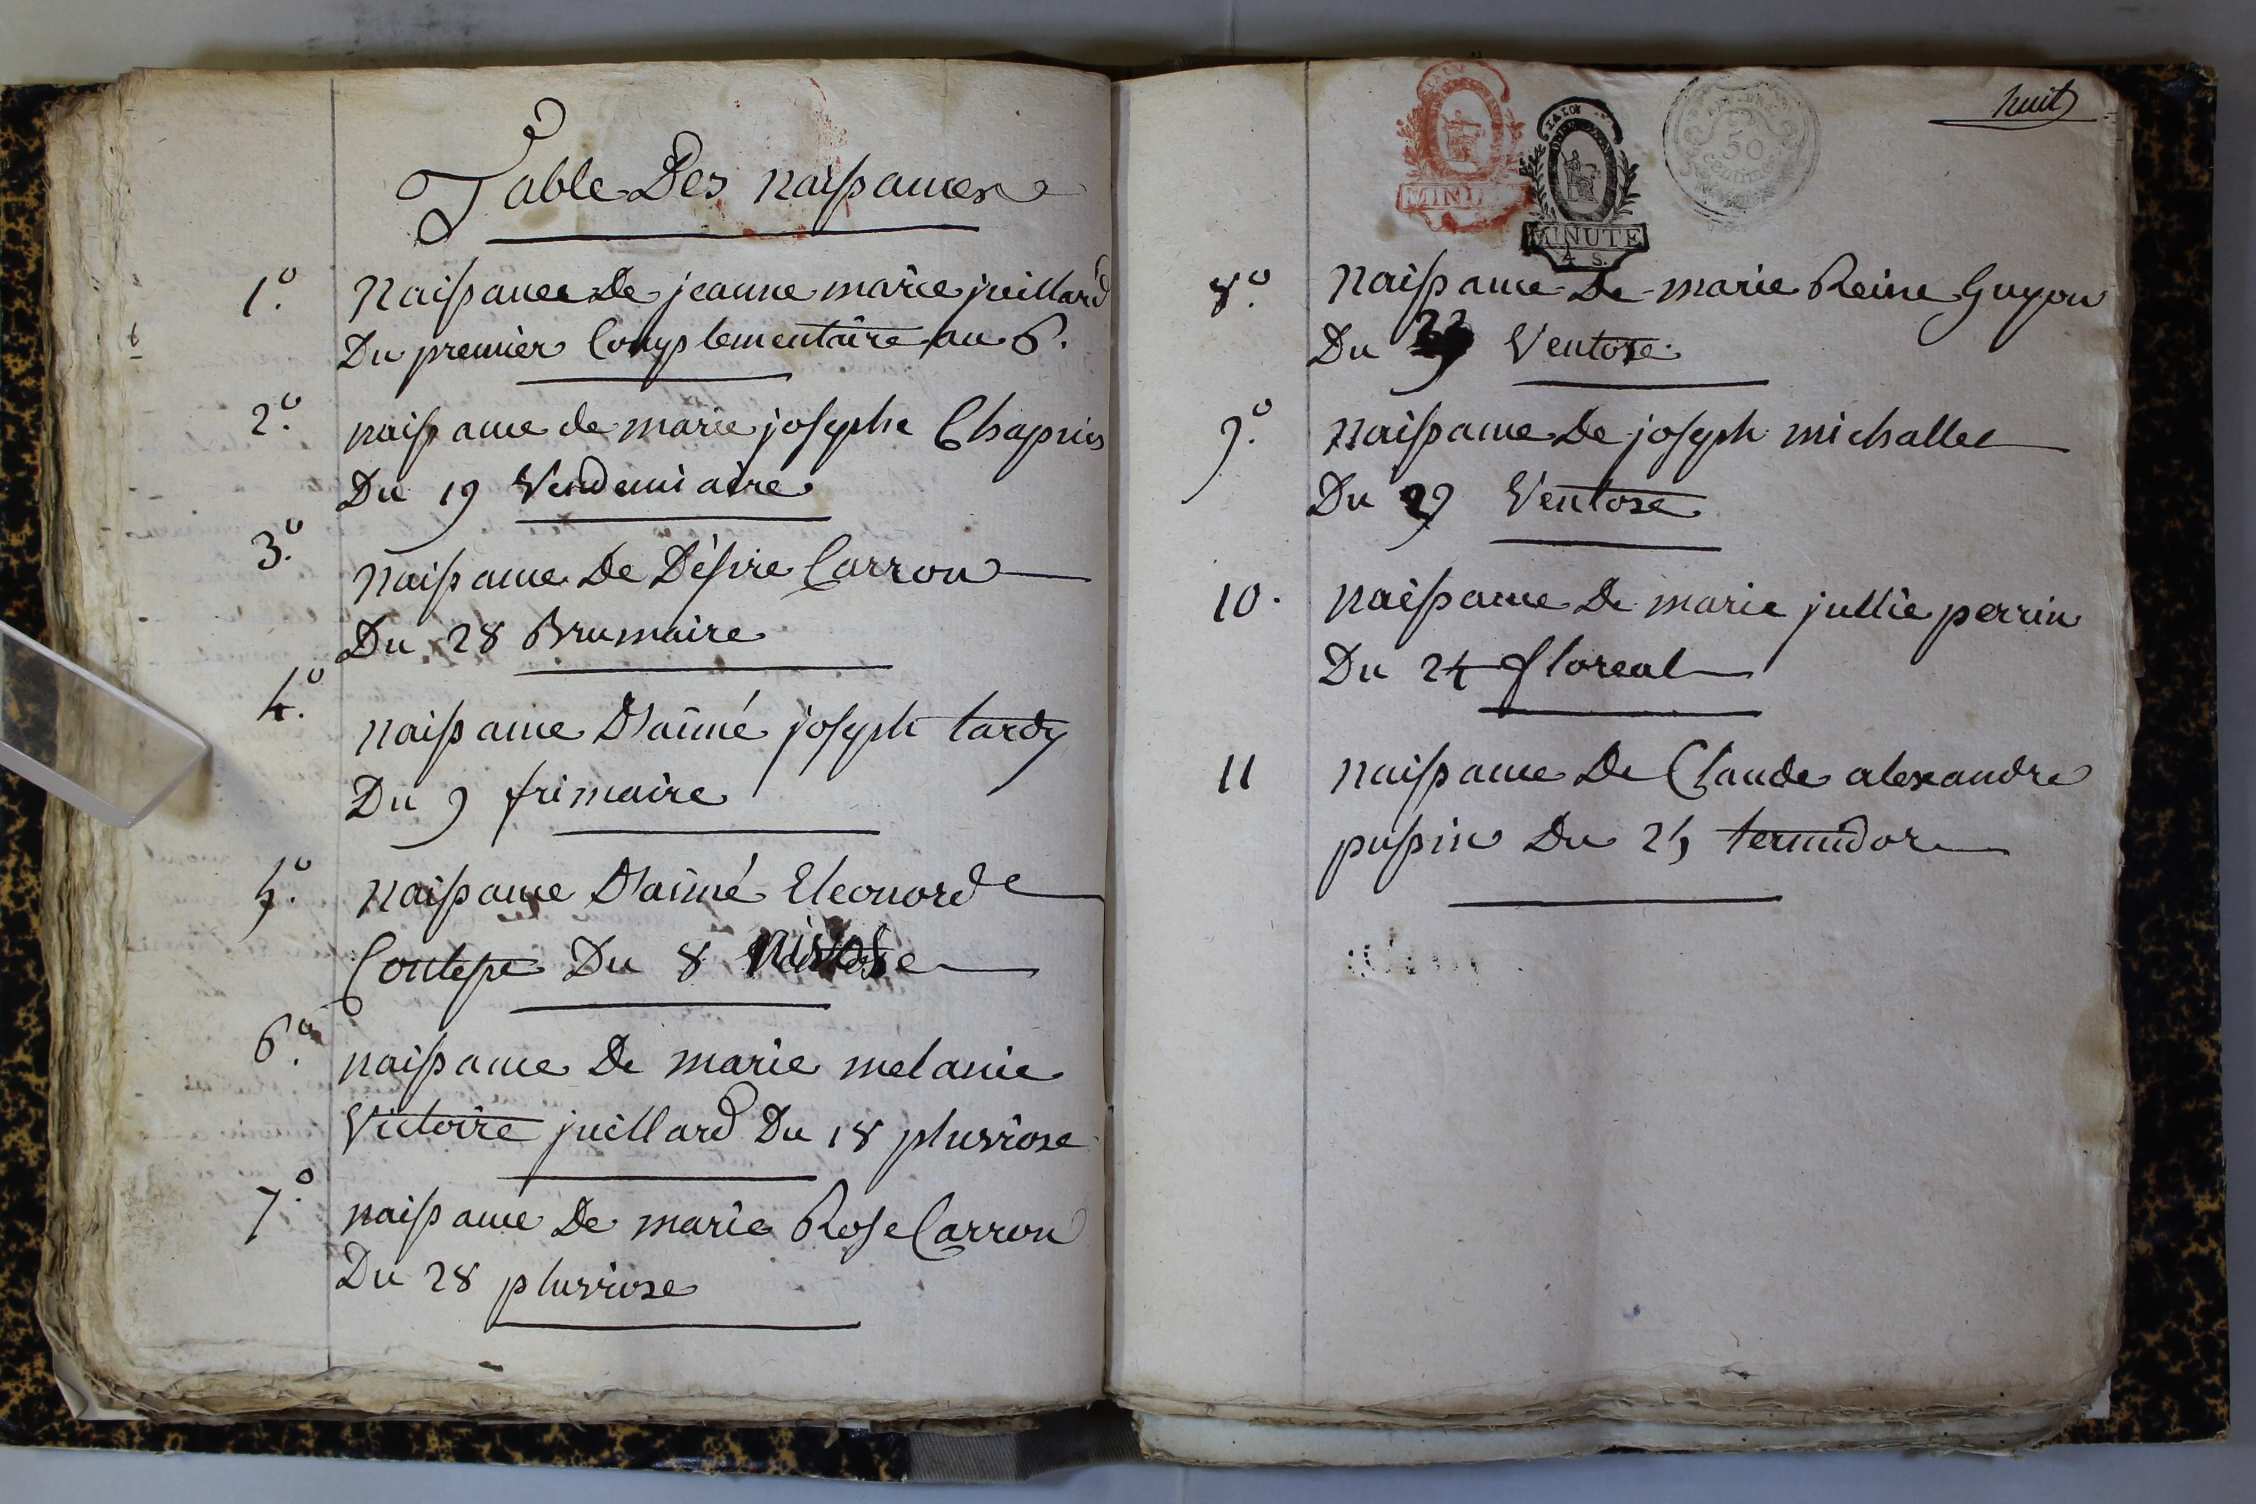 Table Des naissances
1.o naissance De jeanne marie juillard
Du premier Complementaire an 6.
2.o naissance de marie josephe Chapuis
Du 19 Vendemiaire
3.o naissance De Désire Carron
Du 28 Brumaire
4.o naissance D'aimé joseph tardy
Du 9 frimaire
5.o naissance D'aimé Eleonord
Du 8 nivose
6.o naissance De marie melanie
Victoire juillard Du 18 pluviose
7.o naissance De marie Rose Carron
Du 28 pluviose
huit
MINUTE
4 S.
50
Centimes
8.o naissance De marie Reine Guyon
Du Ventose.
9.o naissance De joseph michallet
Du 29 Ventose
10. naissance De marie jullie perrin
Du 24 floreal
11 naissance De Claude alexandre
pussin Du 25 termidor